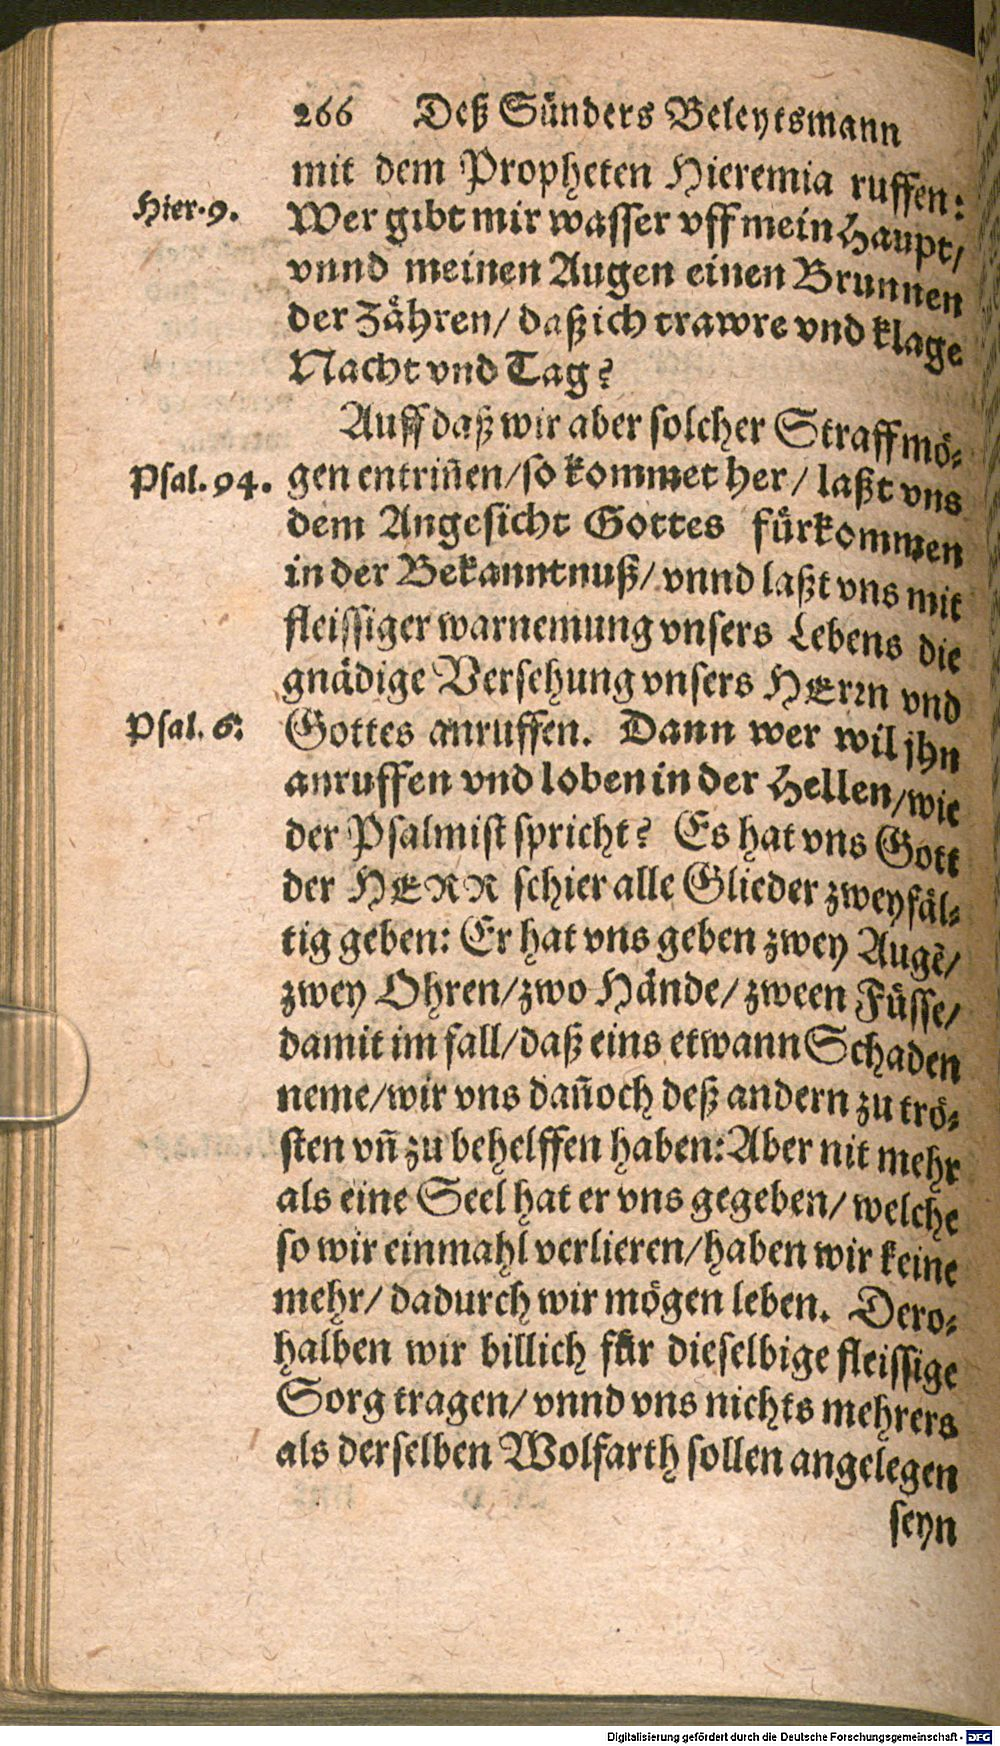 266 Deß Sünders Beleytsmann
mit dem Propheten Hieremia ruffen:
Hier. 9.
Wer gibt mir wasser vff mein Haupt/
vnnd meinen Augen einen Brunnen
der Zähren/ daß ich trawre vnd klage
Nacht vnd Tag?
Auff daß wir aber solcher Straff mö-
Psal. 94.
gen entriñen/ so kommet her/ laßt vns
dem Angesicht Gottes fürkommen
in der Bekanntnuß/ vnnd laßt vns mit
fleissiger warnemung vnsers Lebens die
gnädige Versehung vnsers HErrn vnd
Psal. 6.
Gottes anruffen. Dann wer wil jhn
anruffen vnd loben in der Hellen/ wie
der Psalmist spricht? Es hat vns Gott
der HERR schier alle Glieder zweyfäl-
tig geben: Er hat vns geben zwey Augẽ/
zwey Ohren/ zwo Hände/ zween Füsse/
damit im fall/ daß eins etwann Schaden
neme/ wir vns dañoch deß andern zu trö-
sten vñ zu behelffen haben: Aber nit mehr
als eine Seel hat er vns gegeben/ welche
so wir einmahl verlieren/ haben wir keine
mehr/ dadurch wir mögen leben. Dero-
halben wir billich für dieselbige fleissige
Sorg tragen/ vnnd vns nichts mehrers
als derselben Wolfarth sollen angelegen
seyn
Digitalisierung gefördert durch die Deutsche Forschungsgemeinschaft - DFG